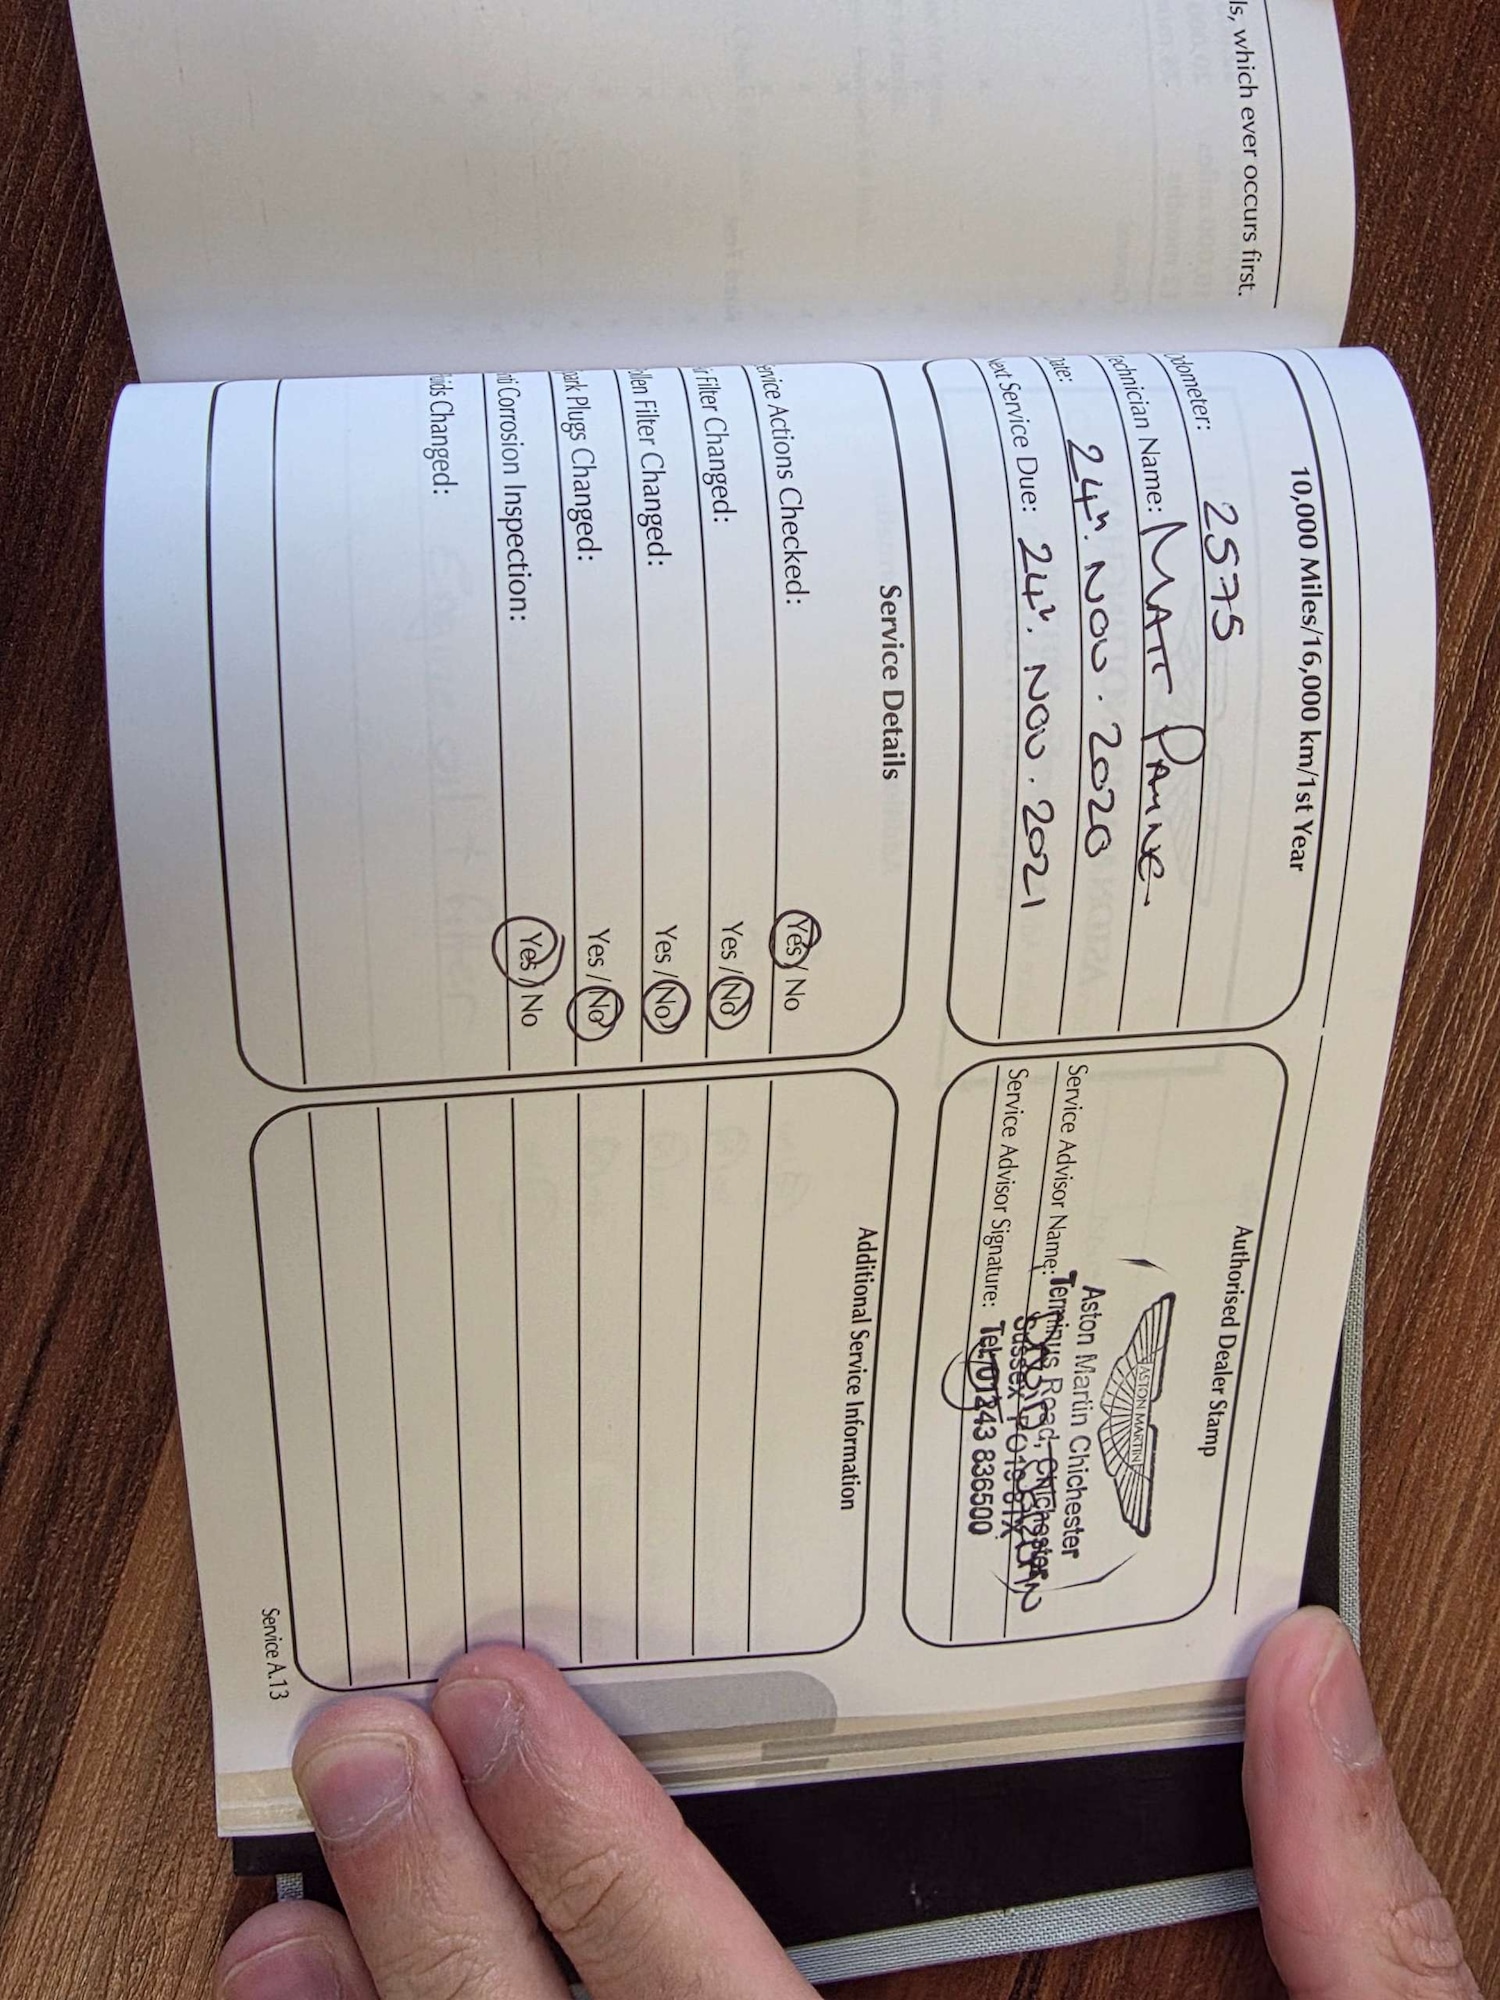 ls, which ever occurs first.
10,000 Miles/16,000 km/1st Year
Odometer: 2575
Technician Name: MATT PAYNE
Date: 24th. NOV. 2020
Next Service Due: 24th. NOV. 2021
Authorised Dealer Stamp
ASTON MARTIN
Aston Martin Chichester
Service Advisor Name: Terminus Road, Chichester
Sussex PO19 8TX
Service Advisor Signature: Tel: 01243 836500
Service Details
ervice Actions Checked: Yes / No
ir Filter Changed: Yes / No
ollen Filter Changed: Yes / No
park Plugs Changed: Yes / No
nti Corrosion Inspection: Yes / No
uids Changed:
Additional Service Information
Service A.13